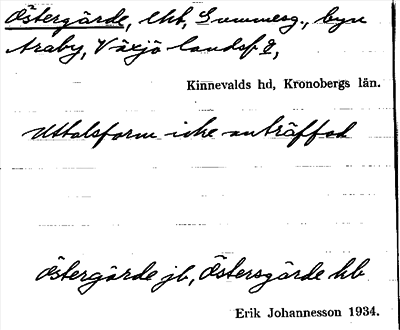 Östergärde, lht, Gummesg., byn
Araby, Växjö landsf.,
Kinnevalds hd, Kronobergs län.
Uttalsform icke anträffad
Östergärde jb, Östersgärde hb
Erik Johannesson 1934.